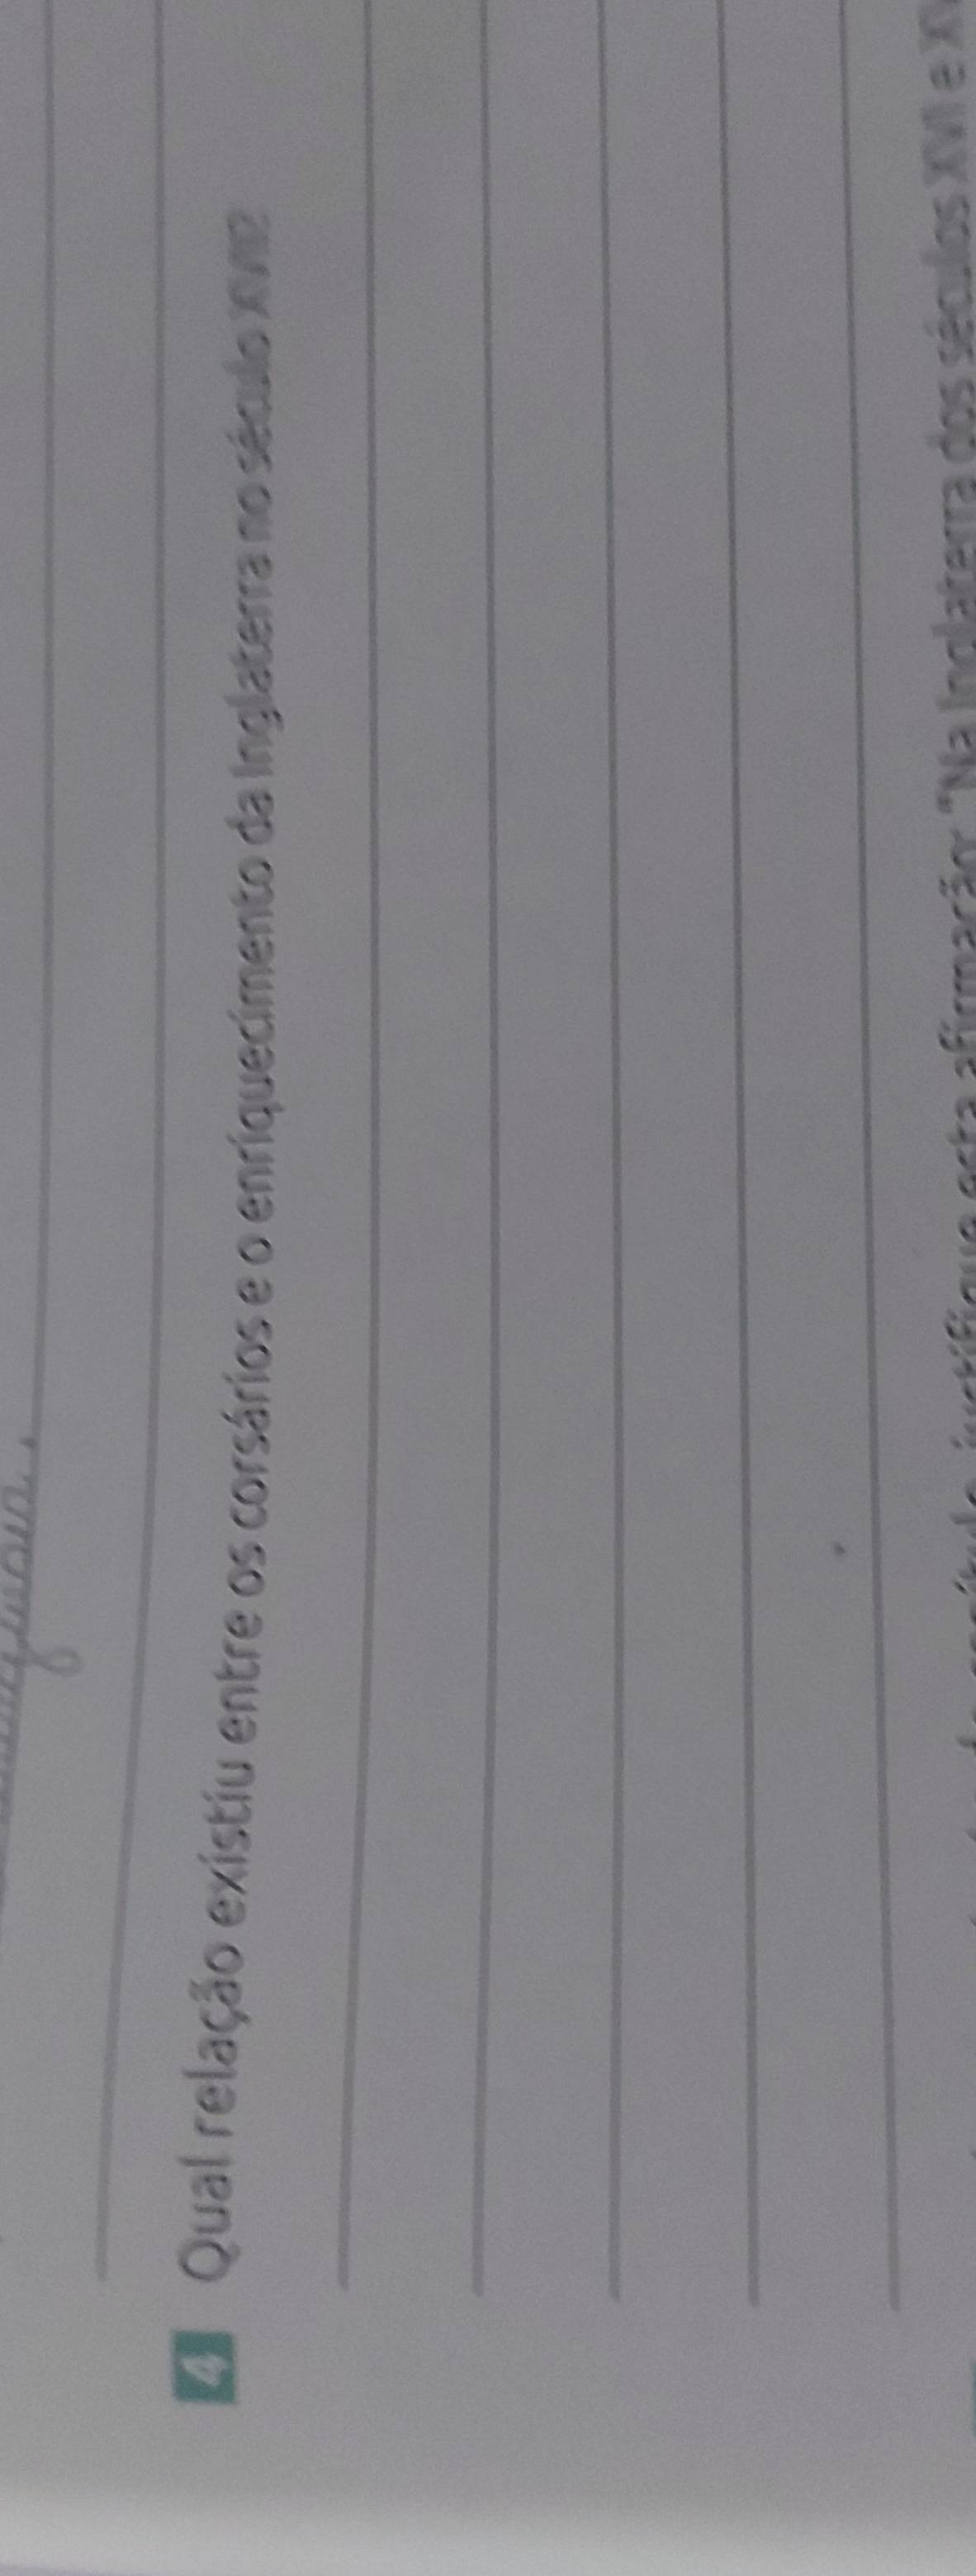 4 Qual relação existiu entre os corsários e o enriquecimento da Inglaterra no século XVII?
justifique esta afirmação: "Na Inglaterra dos séculos XVI e